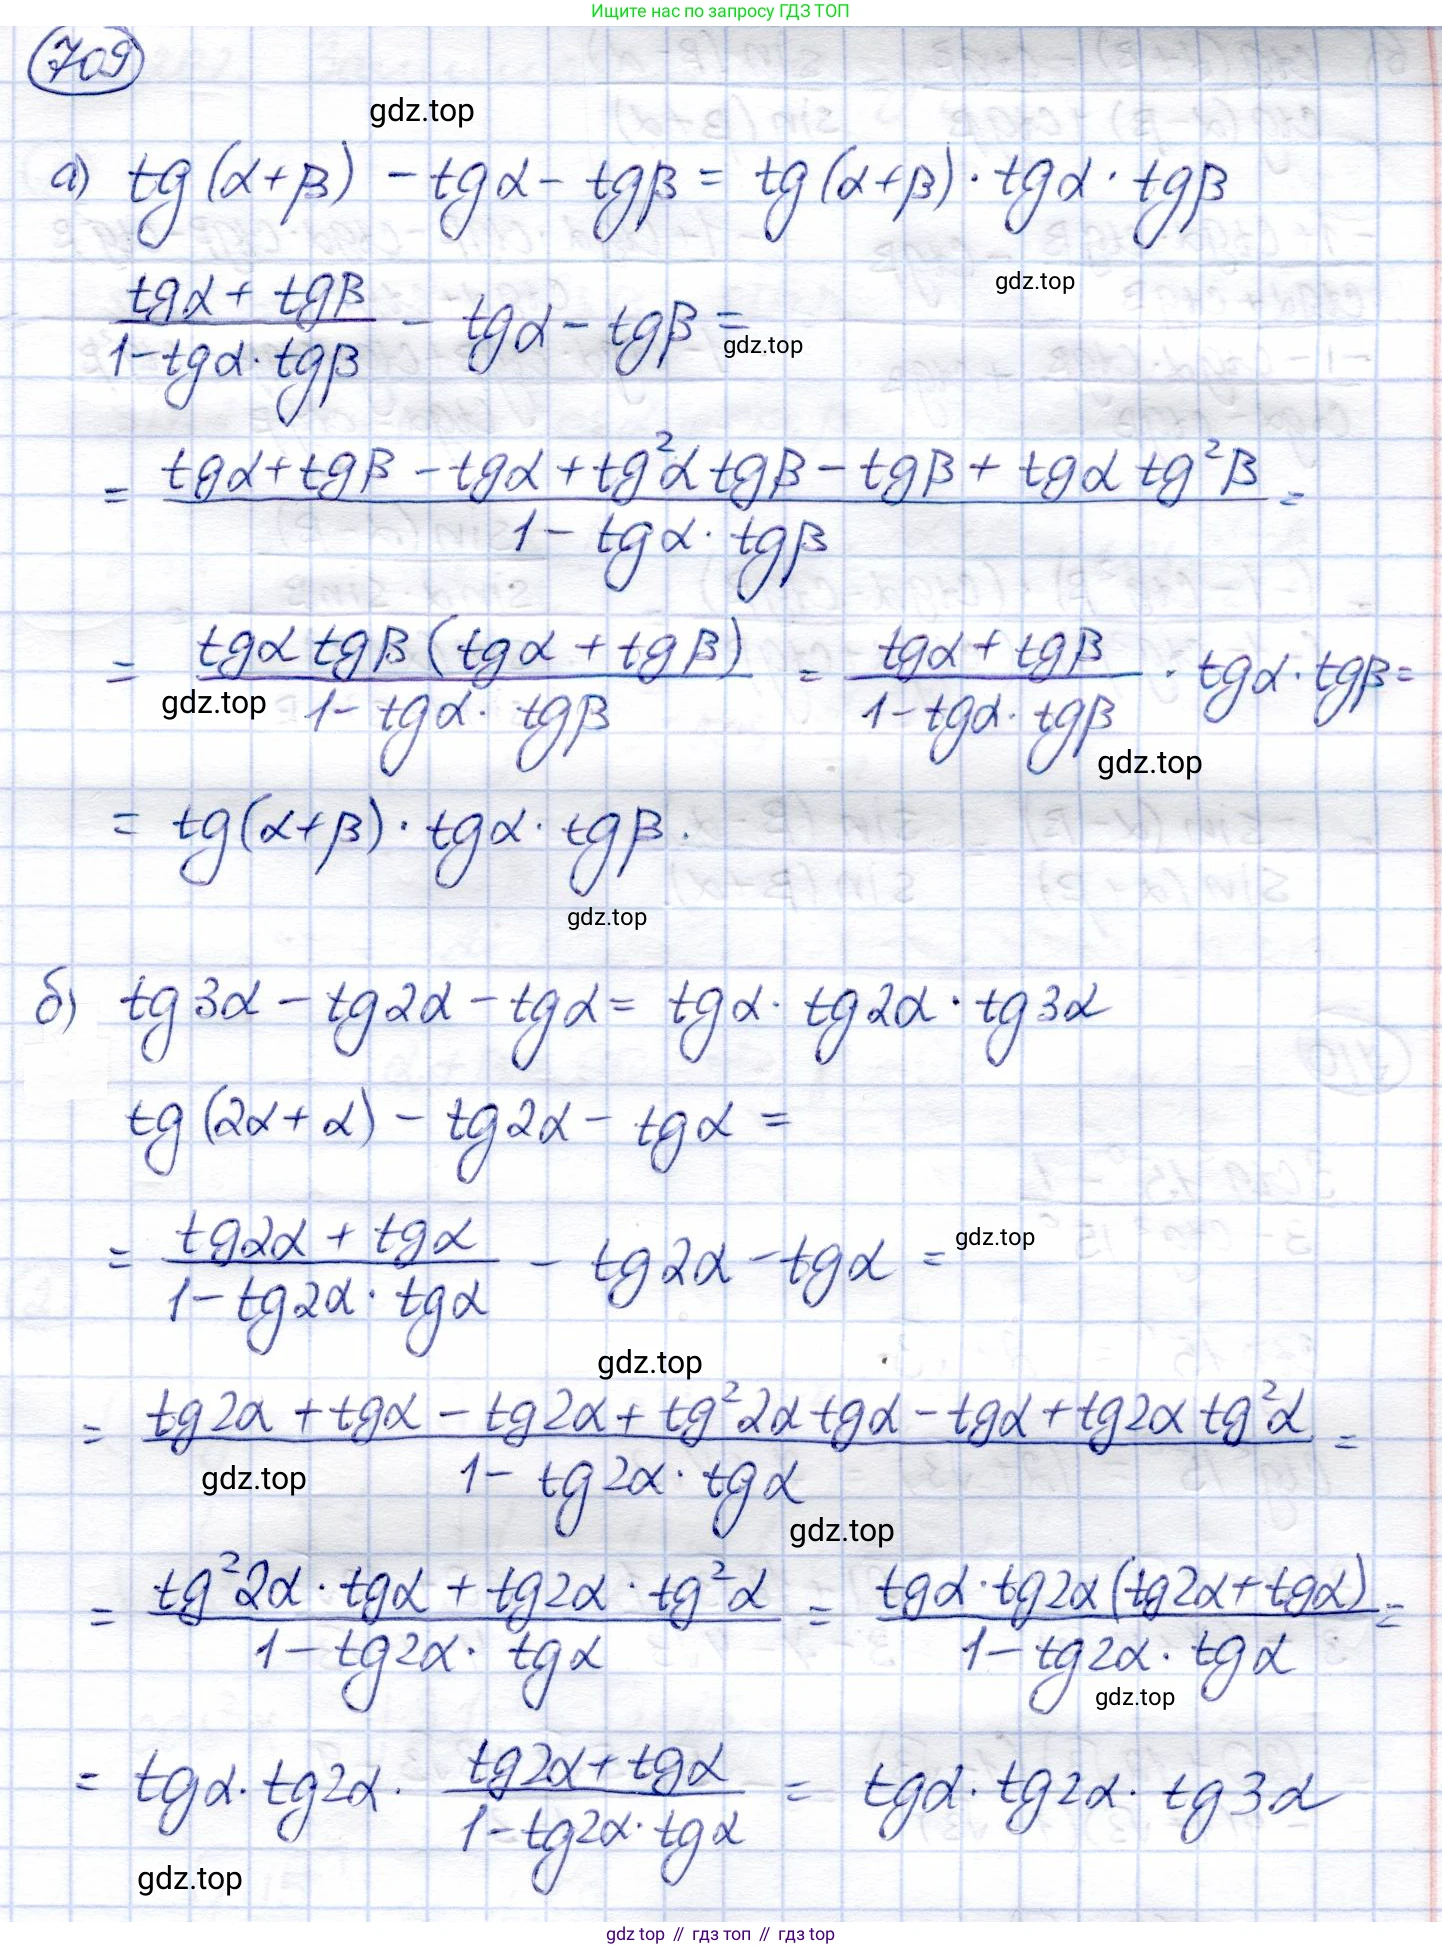 Ищите нас по запросу ГДЗ ТОП
709
gdz.top
а) tg(α+β) - tgα - tgβ = tg(α+β) · tgα · tgβ
gdz.top
(tgα + tgβ)/(1 - tgα · tgβ) - tgα - tgβ =
gdz.top
= (tgα + tgβ - tgα + tg²α tgβ - tgβ + tgα tg²β)/(1 - tgα · tgβ) =
= (tgα tgβ (tgα + tgβ))/(1 - tgα · tgβ) = (tgα + tgβ)/(1 - tgα · tgβ) · tgα · tgβ =
gdz.top
gdz.top
= tg(α+β) · tgα · tgβ.
gdz.top
б) tg3α - tg2α - tgα = tgα · tg2α · tg3α
tg(2α + α) - tg2α - tgα =
= (tg2α + tgα)/(1 - tg2α · tgα) - tg2α - tgα =
gdz.top
gdz.top
= (tg2α + tgα - tg2α + tg²2α tgα - tgα + tg2α tg²α)/(1 - tg2α · tgα) =
gdz.top
gdz.top
= (tg²2α · tgα + tg2α · tg²α)/(1 - tg2α · tgα) = (tgα · tg2α (tg2α + tgα))/(1 - tg2α · tgα) =
gdz.top
= tgα · tg2α · (tg2α + tgα)/(1 - tg2α · tgα) = tgα · tg2α · tg3α
gdz.top
gdz top // гдз топ // гдз top